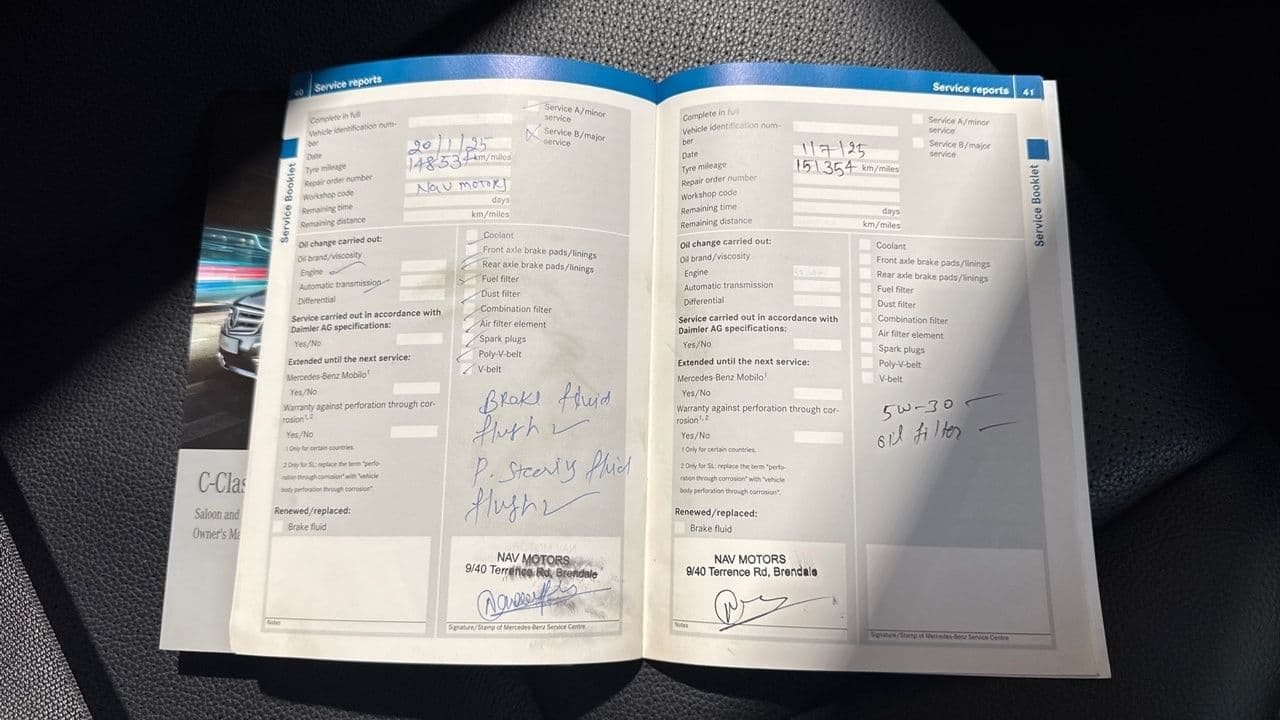 40 Service reports
Complete in full
Vehicle identification num-
ber
Date 20/1/25
Tyre mileage 148534 km/miles
Repair order number
Workshop code Nav motors
Remaining time days
Remaining distance km/miles
Service A/minor
service
Service B/major
service
Service Booklet
Oil change carried out:
Oil brand/viscosity
Engine
Automatic transmission
Differential
Service carried out in accordance with
Daimler AG specifications:
Yes/No
Extended until the next service:
Mercedes-Benz Mobilo1
Yes/No
Warranty against perforation through cor-
rosion1, 2
Yes/No
1 Only for certain countries.
2 Only for SL: replace the term "perfo-
ration through corrosion" with "vehicle
body perforation through corrosion".
Renewed/replaced:
Brake fluid
Coolant
Front axle brake pads/linings
Rear axle brake pads/linings
Fuel filter
Dust filter
Combination filter
Air filter element
Spark plugs
Poly-V-belt
V-belt
Brake fluid
flush
P. Steering fluid
flush
NAV MOTORS
9/40 Terrence Rd, Brendale
Notes
Signature/Stamp of Mercedes-Benz Service Centre
Service reports 41
Complete in full
Vehicle identification num-
ber
Date 1/7/25
Tyre mileage 151354 km/miles
Repair order number
Workshop code
Remaining time days
Remaining distance km/miles
Service A/minor
service
Service B/major
service
Service Booklet
Oil change carried out:
Oil brand/viscosity
Engine
Automatic transmission
Differential
Service carried out in accordance with
Daimler AG specifications:
Yes/No
Extended until the next service:
Mercedes-Benz Mobilo1
Yes/No
Warranty against perforation through cor-
rosion1, 2
Yes/No
1 Only for certain countries.
2 Only for SL: replace the term "perfo-
ration through corrosion" with "vehicle
body perforation through corrosion".
Renewed/replaced:
Brake fluid
Coolant
Front axle brake pads/linings
Rear axle brake pads/linings
Fuel filter
Dust filter
Combination filter
Air filter element
Spark plugs
Poly-V-belt
V-belt
5W-30
oil filter
NAV MOTORS
9/40 Terrence Rd, Brendale
Notes
Signature/Stamp of Mercedes-Benz Service Centre
C-Clas
Saloon and
Owner's Ma